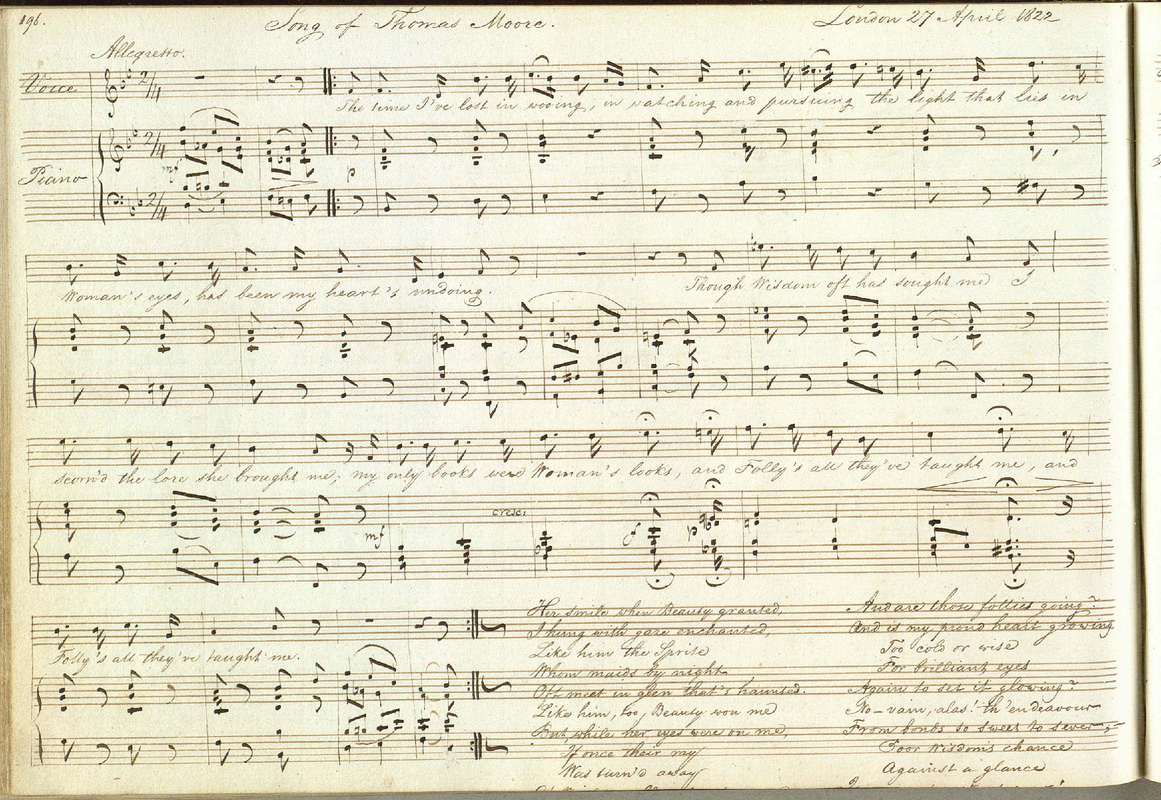 196.
Song of Thomas Moore.
London 27 April 1822
Allegretto.
Voice
2/4
The time I've lost in wooing, in watching and pursuing the light that lies in
2/4
mf
p
Piano
2/4
Woman's eyes, has been my heart's undoing.
Though Wisdom oft has sought me I
scorn'd the lore she brought me; my only books were Woman's looks, and Folly's all they've taught me, and
cresc:
mf
f
p
Folly's all they've taught me.
Her smile when Beauty granted,
I hung with gaze enchanted,
Like him the Sprite
Whom maids by night
Oft meet in glen that's haunted.
Like him, too, Beauty won me
But, while her eyes were on me,
If once their ray
Was turn'd away
And are those follies going?
And is my proud heart growing
Too cold or wise
For brilliant eyes
Again to set it glowing?
No – vain, alas! th'endeavour
From bonds so sweet to sever;
Poor Wisdom's chance
Against a glance